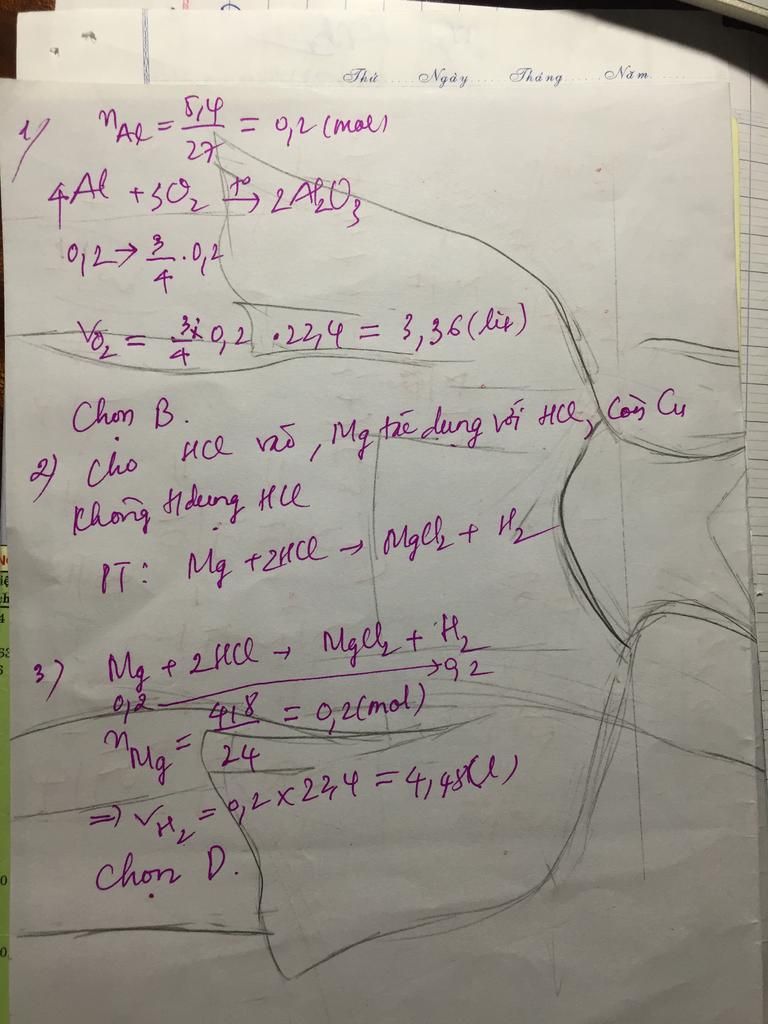 Thứ Ngày Tháng Năm
1/ n_Al = 5,4/27 = 0,2 (mol)
4Al + 3O₂ →(t°) 2Al₂O₃
0,2 → 3/4 . 0,2
V_O₂ = 3/4 x 0,2 . 22,4 = 3,36 (lit)
Chọn B.
2) Cho HCl vào, Mg tác dụng với HCl, còn Cu
không tdụng HCl
PT: Mg + 2HCl → MgCl₂ + H₂
3) Mg + 2HCl → MgCl₂ + H₂
0,2 → 0,2
n_Mg = 4,8/24 = 0,2 (mol)
=> V_H₂ = 0,2 x 22,4 = 4,48 (l)
Chọn D.